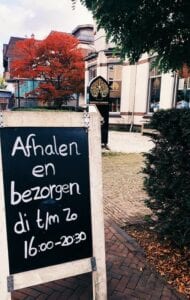 Afhalen
en
bezorgen
di t/m Zo
16:00-20:30